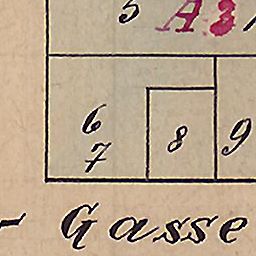 5 A 3
6 8 9
7
- Gasse